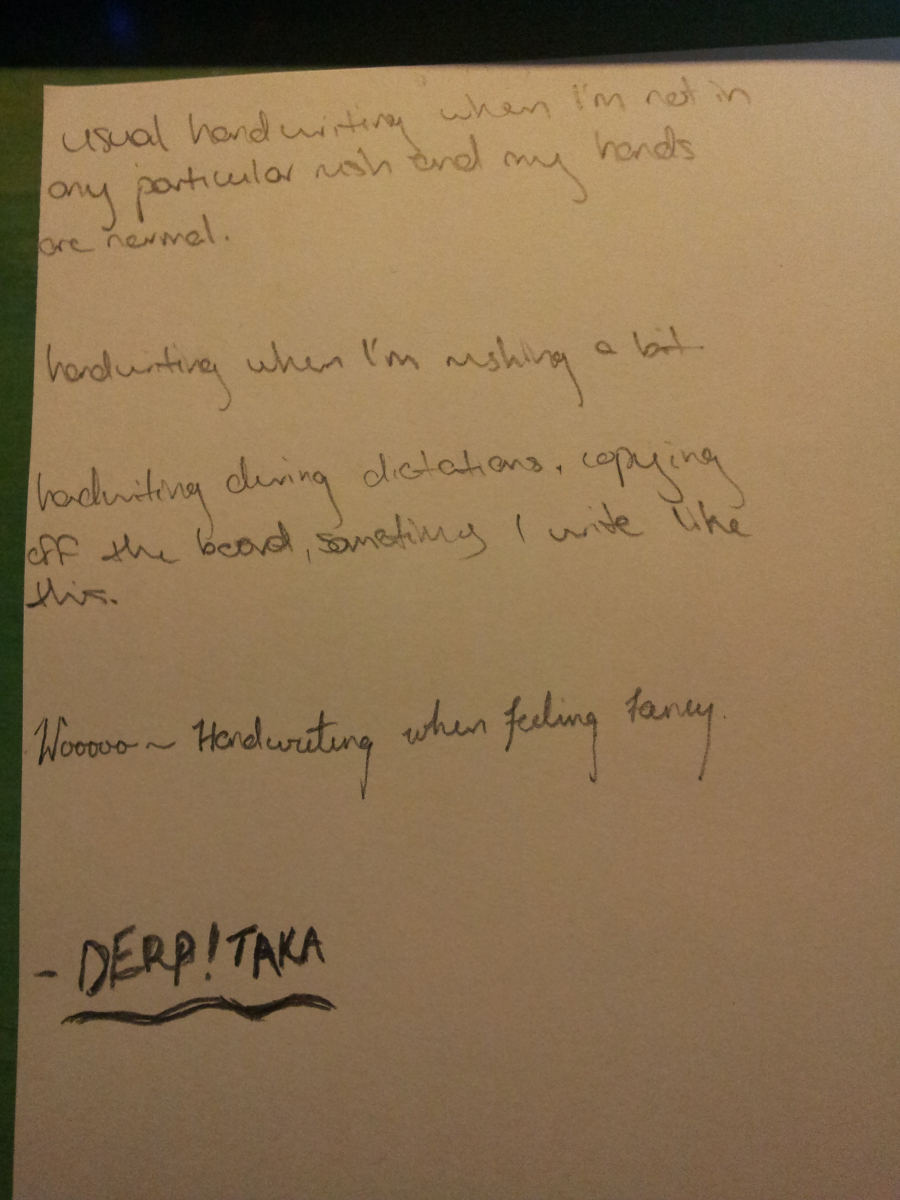 usual handwriting when I'm not in
any particular rush and my hands
are normal.
handwriting when I'm rushing a bit
hadwriting during dictations, copying
off the board, sometimes I write like
this.
Wooooo ~ Handwriting when feeling fancy.
- DERP!TAKA